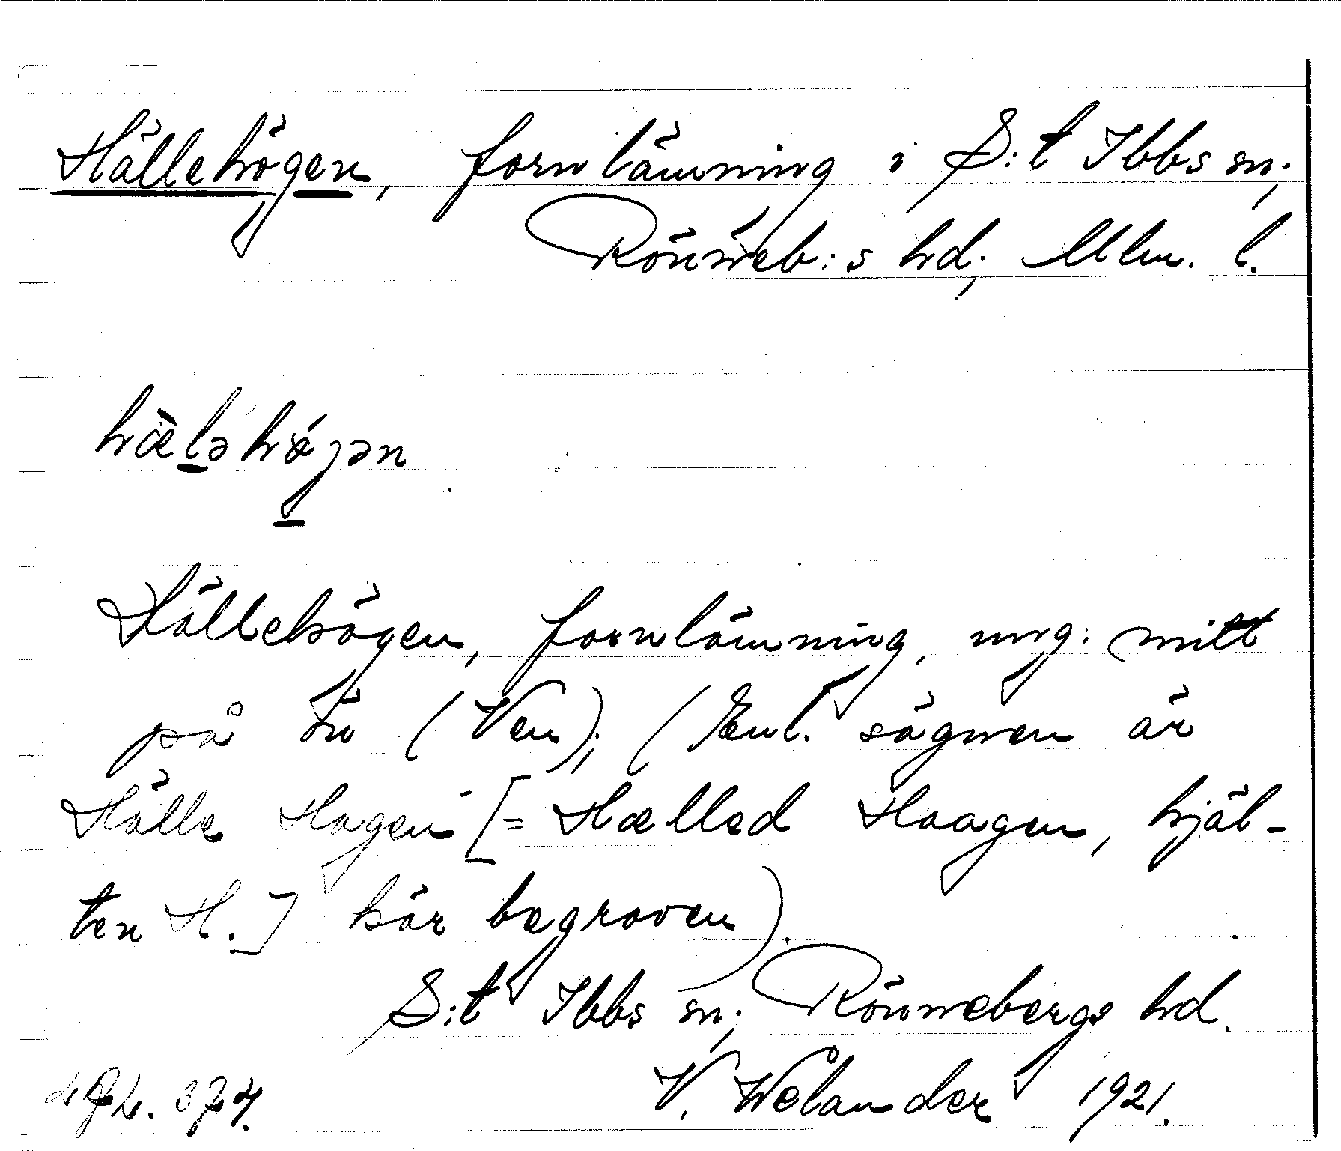 Hällehögen, fornlämning i S:t Ibbs sn;
Rönneb:s hd; Mlm. l.
hæ̀ləhǿjən
Hällehögen, fornlämning, ung: mitt
på ön (Ven); (Enl. sägnen är
Hälle Hagen [= Hælled Haagen, hjäl-
ten H.] här begraven).
S:t Ibbs sn; Rönnebergs hd.
V. Welander 1921.